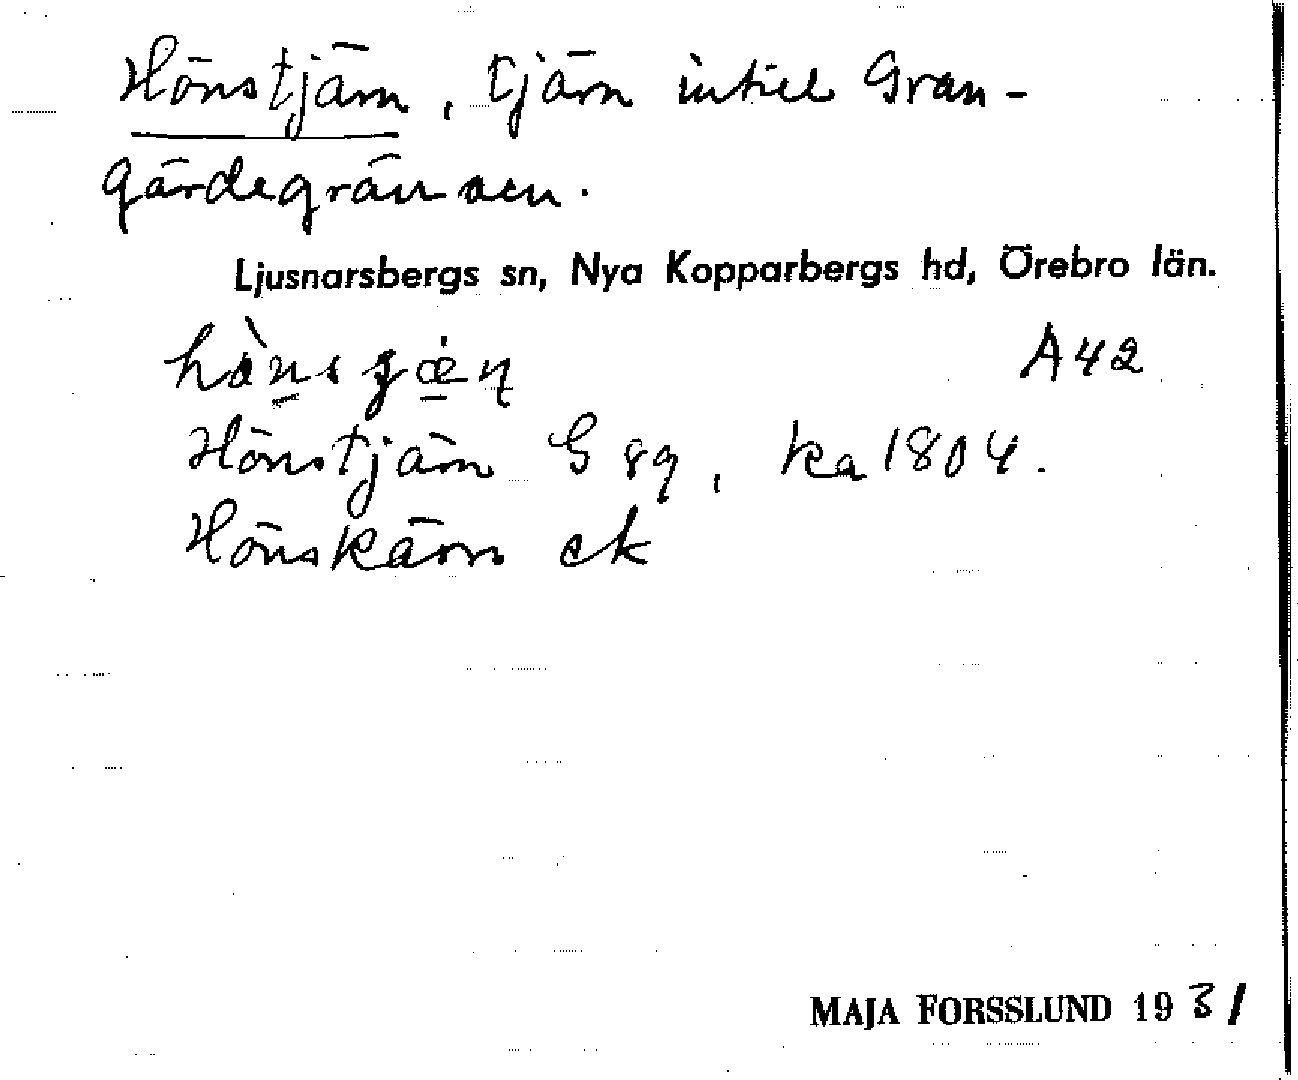 Hönstjärn, tjärn intill Gran-
gärdegränsen.
Ljusnarsbergs sn, Nya Kopparbergs hd, Örebro län.
A42
Hönstjärn G 89, ka 1804.
Hönskärn ek
MAJA FORSSLUND 1931